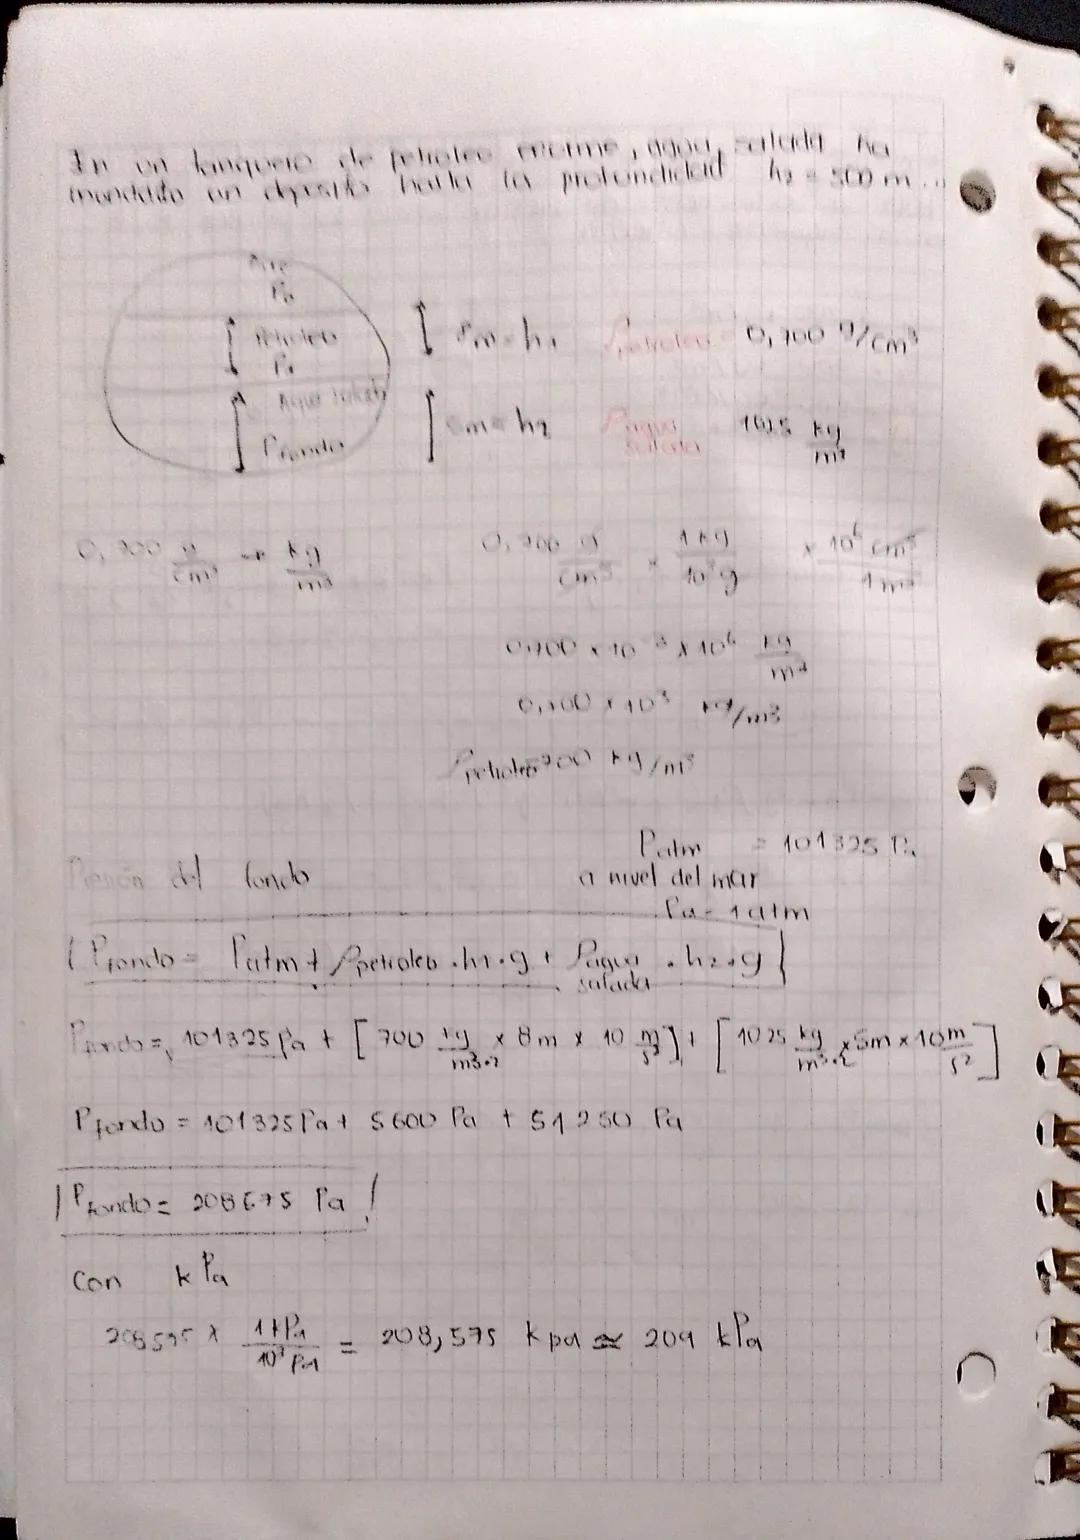 En un tanquero de petroleo enorme, agua salada ha
inundado un deposito hasta la profundidad h2 = 500 m...
Aire
Po
Petroleo
P1
Agua salada
Pfondo
8m = h1
ρpetroleo = 0,700 g/cm³
5m = h2
ρagua salada 1025 kg/m³
0,700 g/cm³ → kg/m³
0,700 g/cm³ × 1 kg/10³ g × 10⁶ cm³/1 m³
0,700 × 10⁻³ × 10⁶ kg/m³
0,700 × 10³ kg/m³
ρpetroleo 700 kg/m³
Patm = 101325 Pa
a nivel del mar
Pa = 1 atm
Presión del fondo
Pfondo = Patm + ρpetroleo . h1 . g + ρagua salada . h2 . g
Pfondo = 101325 Pa + [700 kg/m³ × 8m × 10 m/s²] + [1025 kg/m³ × 5m × 10 m/s²]
Pfondo = 101325 Pa + 5600 Pa + 51250 Pa
Pfondo = 208575 Pa
con kPa
208575 × 1 kPa/10³ Pa = 208,575 kpa ≃ 209 kPa